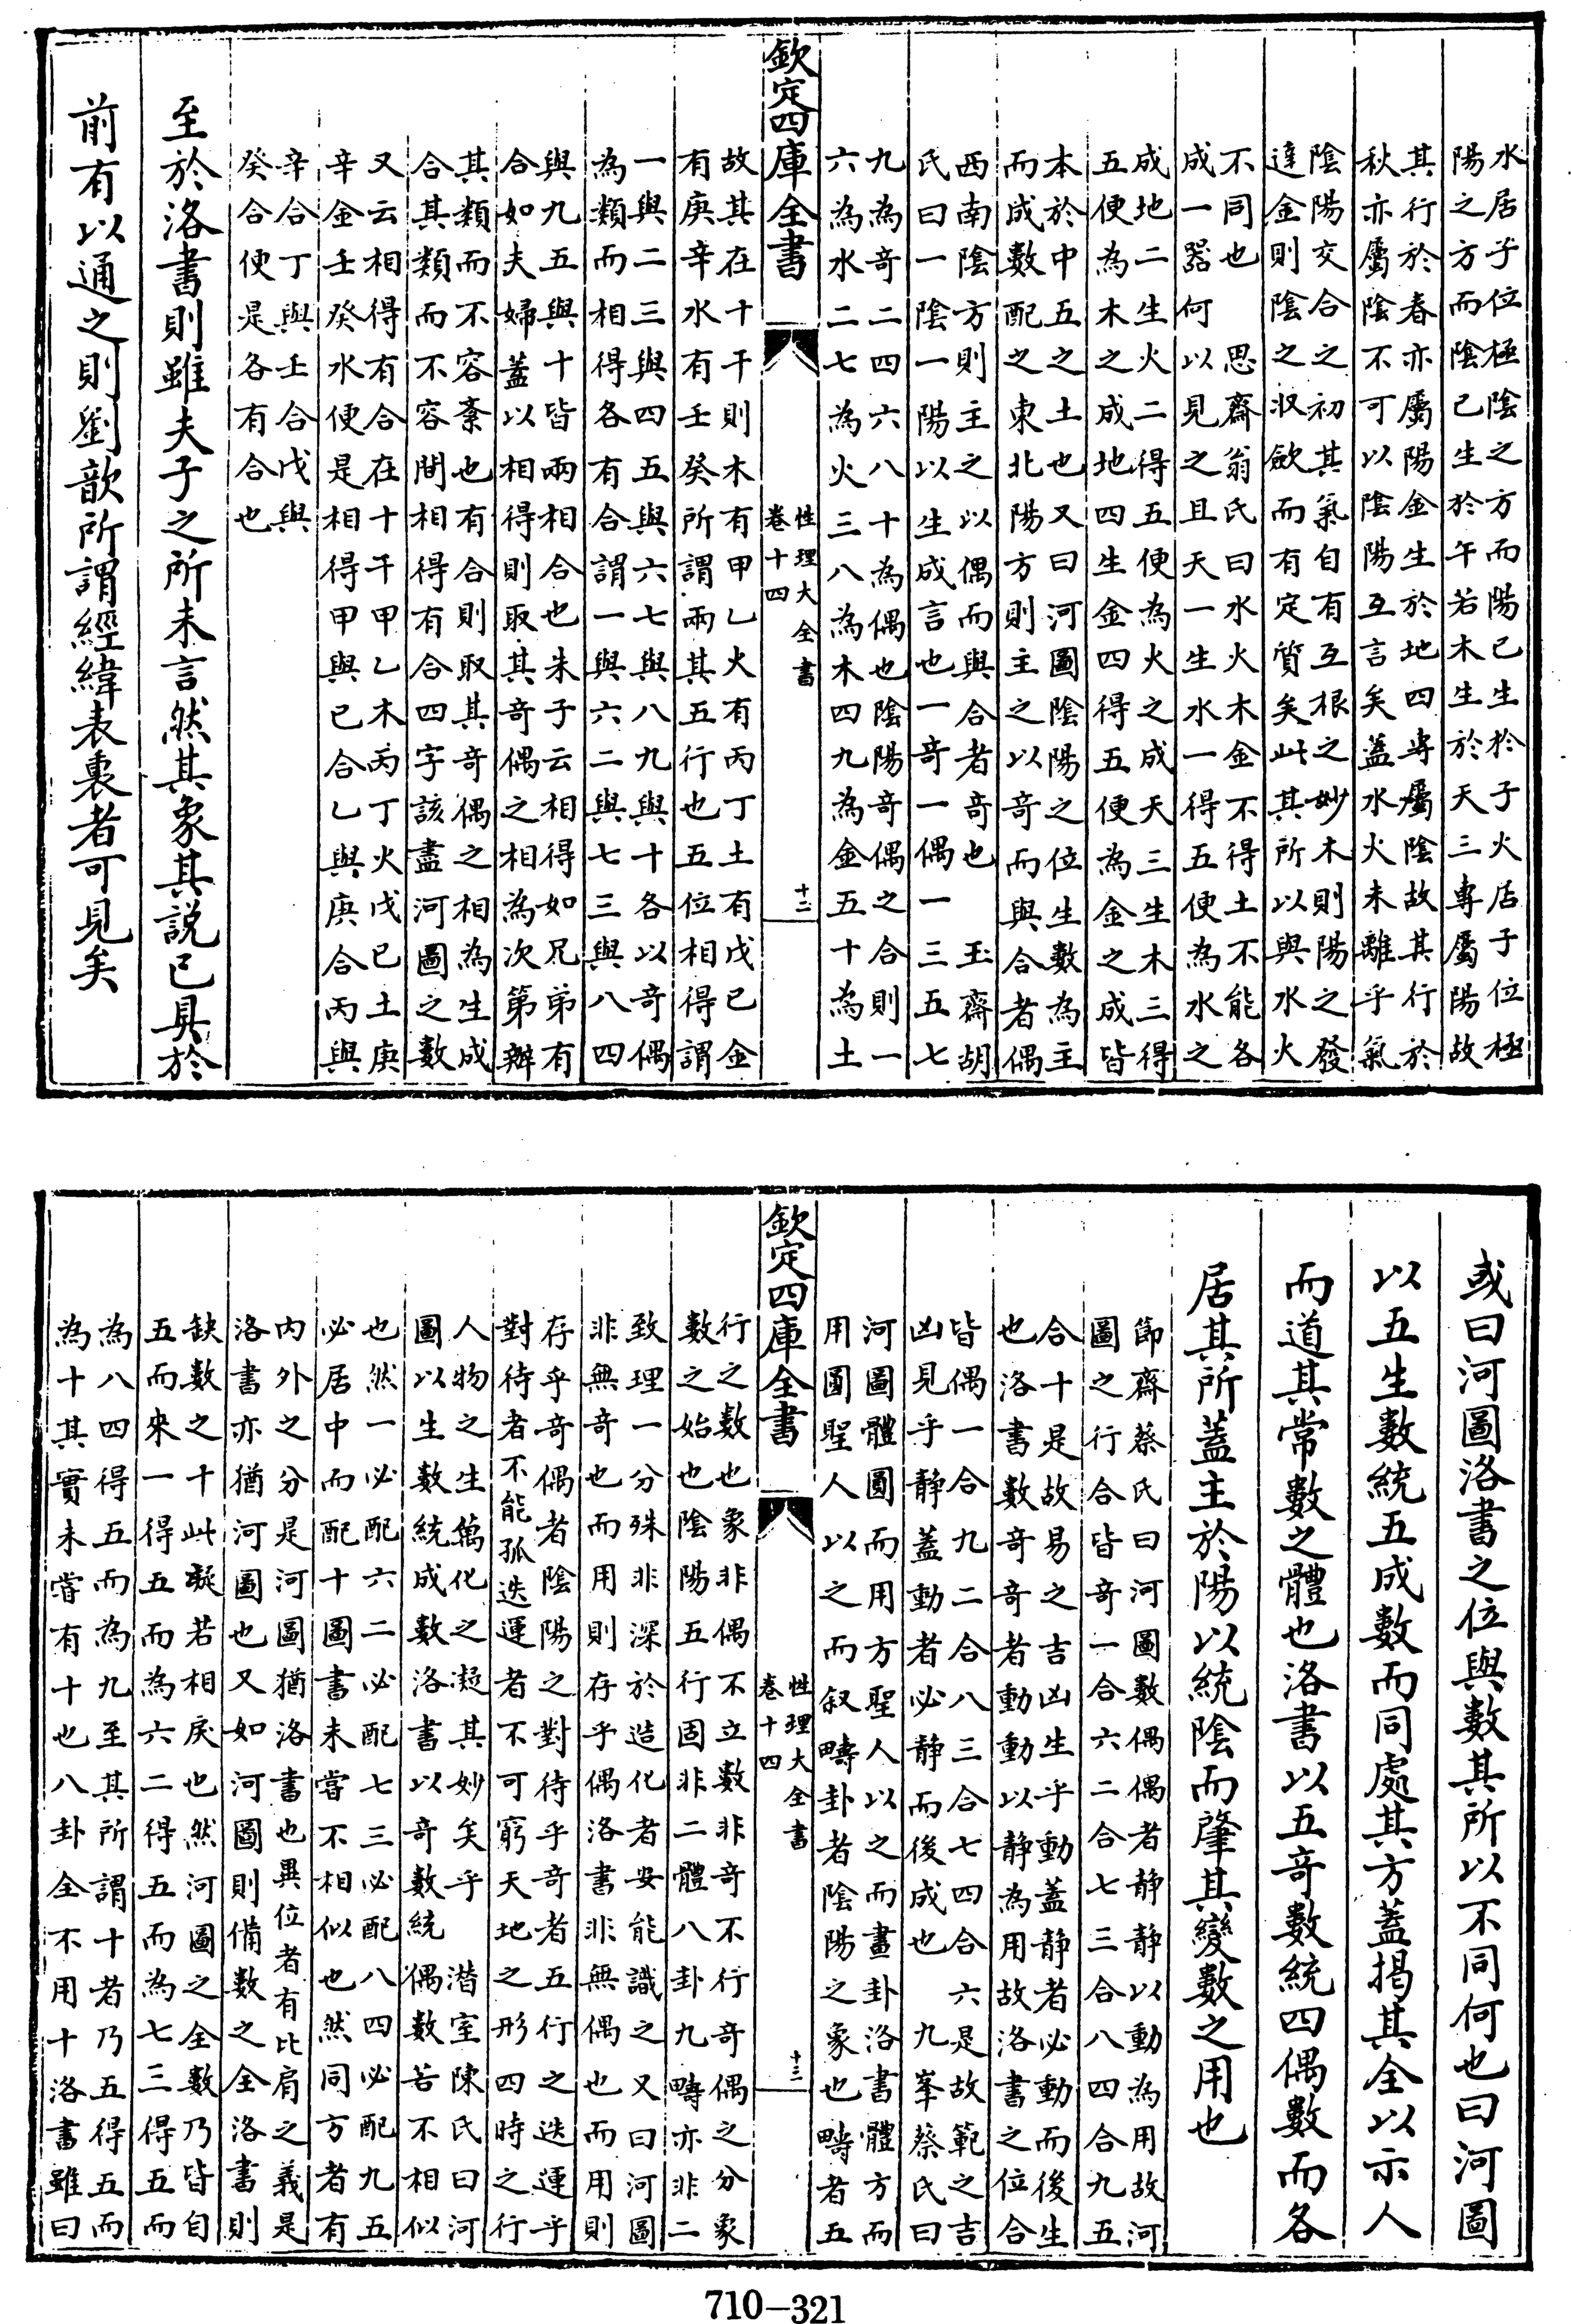 水居子位極陰之方而陽已生於子火居子位極
陽之方而陰已生於午若木生於天三專屬陽故
其行於春亦屬陽金生於地四專屬陰故其行於
秋亦屬陰不可以陰陽互言矣蓋水火未離乎氣
陰陽交合之初其氣自有互根之妙木則陽之發
達金則陰之收斂而有定質矣此其所以與水火
不同也 思齋翁氏曰水火木金不得土不能各
成一器何以見之且天一生水一得五便為水之
成地二生火二得五便為火之成天三生木三得
五便為木之成地四生金四得五便為金之成皆
本於中五之土也又曰河圖陰陽之位生數為主
而成數配之東北陽方則主之以奇而與合者偶
西南陰方則主之以偶而與合者奇也 玉齋胡
氏曰一陰一陽以生成言也一奇一偶一三五七
九為奇二四六八十為偶也陰陽奇偶之合則一
六為水二七為火三八為木四九為金五十為土
欽定四庫全書
性理大全書
卷十四
十二
故其在十干則木有甲乙火有丙丁土有戊己金
有庚辛水有壬癸所謂兩其五行也五位相得謂
一與二三與四五與六七與八九與十各以奇偶
為類而相得各有合謂一與六二與七三與八四
與九五與十皆兩相合也朱子云相得如兄弟有
合如夫婦蓋以相得則取其奇偶之相為次第辨
其類而不容紊也有合則取其奇偶之相為生成
合其類而不容間相得有合四字該盡河圖之數
又云相得有合在十干甲乙木丙丁火戊己土庚
辛金壬癸水便是相得甲與己合乙與庚合丙與
辛合丁與壬合戊與
癸合便是各有合也
至於洛書則雖夫子之所未言然其象其說已具於
前有以通之則劉歆所謂經緯表裏者可見矣
或曰河圖洛書之位與數其所以不同何也曰河圖
以五生數統五成數而同處其方蓋揭其全以示人
而道其常數之體也洛書以五奇數統四偶數而各
居其所蓋主於陽以統陰而肇其變數之用也
節齋蔡氏曰河圖數偶偶者靜靜以動為用故河
圖之行合皆奇一合六二合七三合八四合九五
合十是故易之吉凶生乎動蓋靜者必動而後生
也洛書數奇奇者動動以靜為用故洛書之位合
皆偶一合九二合八三合七四合六是故範之吉
凶見乎靜蓋動者必靜而後成也 九峯蔡氏曰
河圖體圓而用方聖人以之而畫卦洛書體方而
用圓聖人以之而叙疇卦者陰陽之象也疇者五
欽定四庫全書
性理大全書
卷十四
十三
行之數也象非偶不立數非奇不行奇偶之分象
數之始也陰陽五行固非二體八卦九疇亦非二
致理一分殊非深於造化者安能識之又曰河圖
非無奇也而用則存乎偶洛書非無偶也而用則
存乎奇偶者陰陽之對待乎奇者五行之迭運乎
對待者不能孤迭運者不可窮天地之形四時之行
人物之生萬化之凝其妙矣乎 潛室陳氏曰河
圖以生數統成數洛書以奇數統偶數若不相似
也然一必配六二必配七三必配八四必配九五
必居中而配十圖書未嘗不相似也然同方者有
內外之分是河圖猶洛書也異位者有比肩之義是
洛書亦猶河圖也又如河圖則備數之全洛書則
缺數之十此疑若相戾也然河圖之全數乃皆自
五而來一得五而為六二得五而為七三得五而
為八四得五而為九至其所謂十者乃五得五而
為十其實未嘗有十也八卦全不用十洛書雖曰
710-321